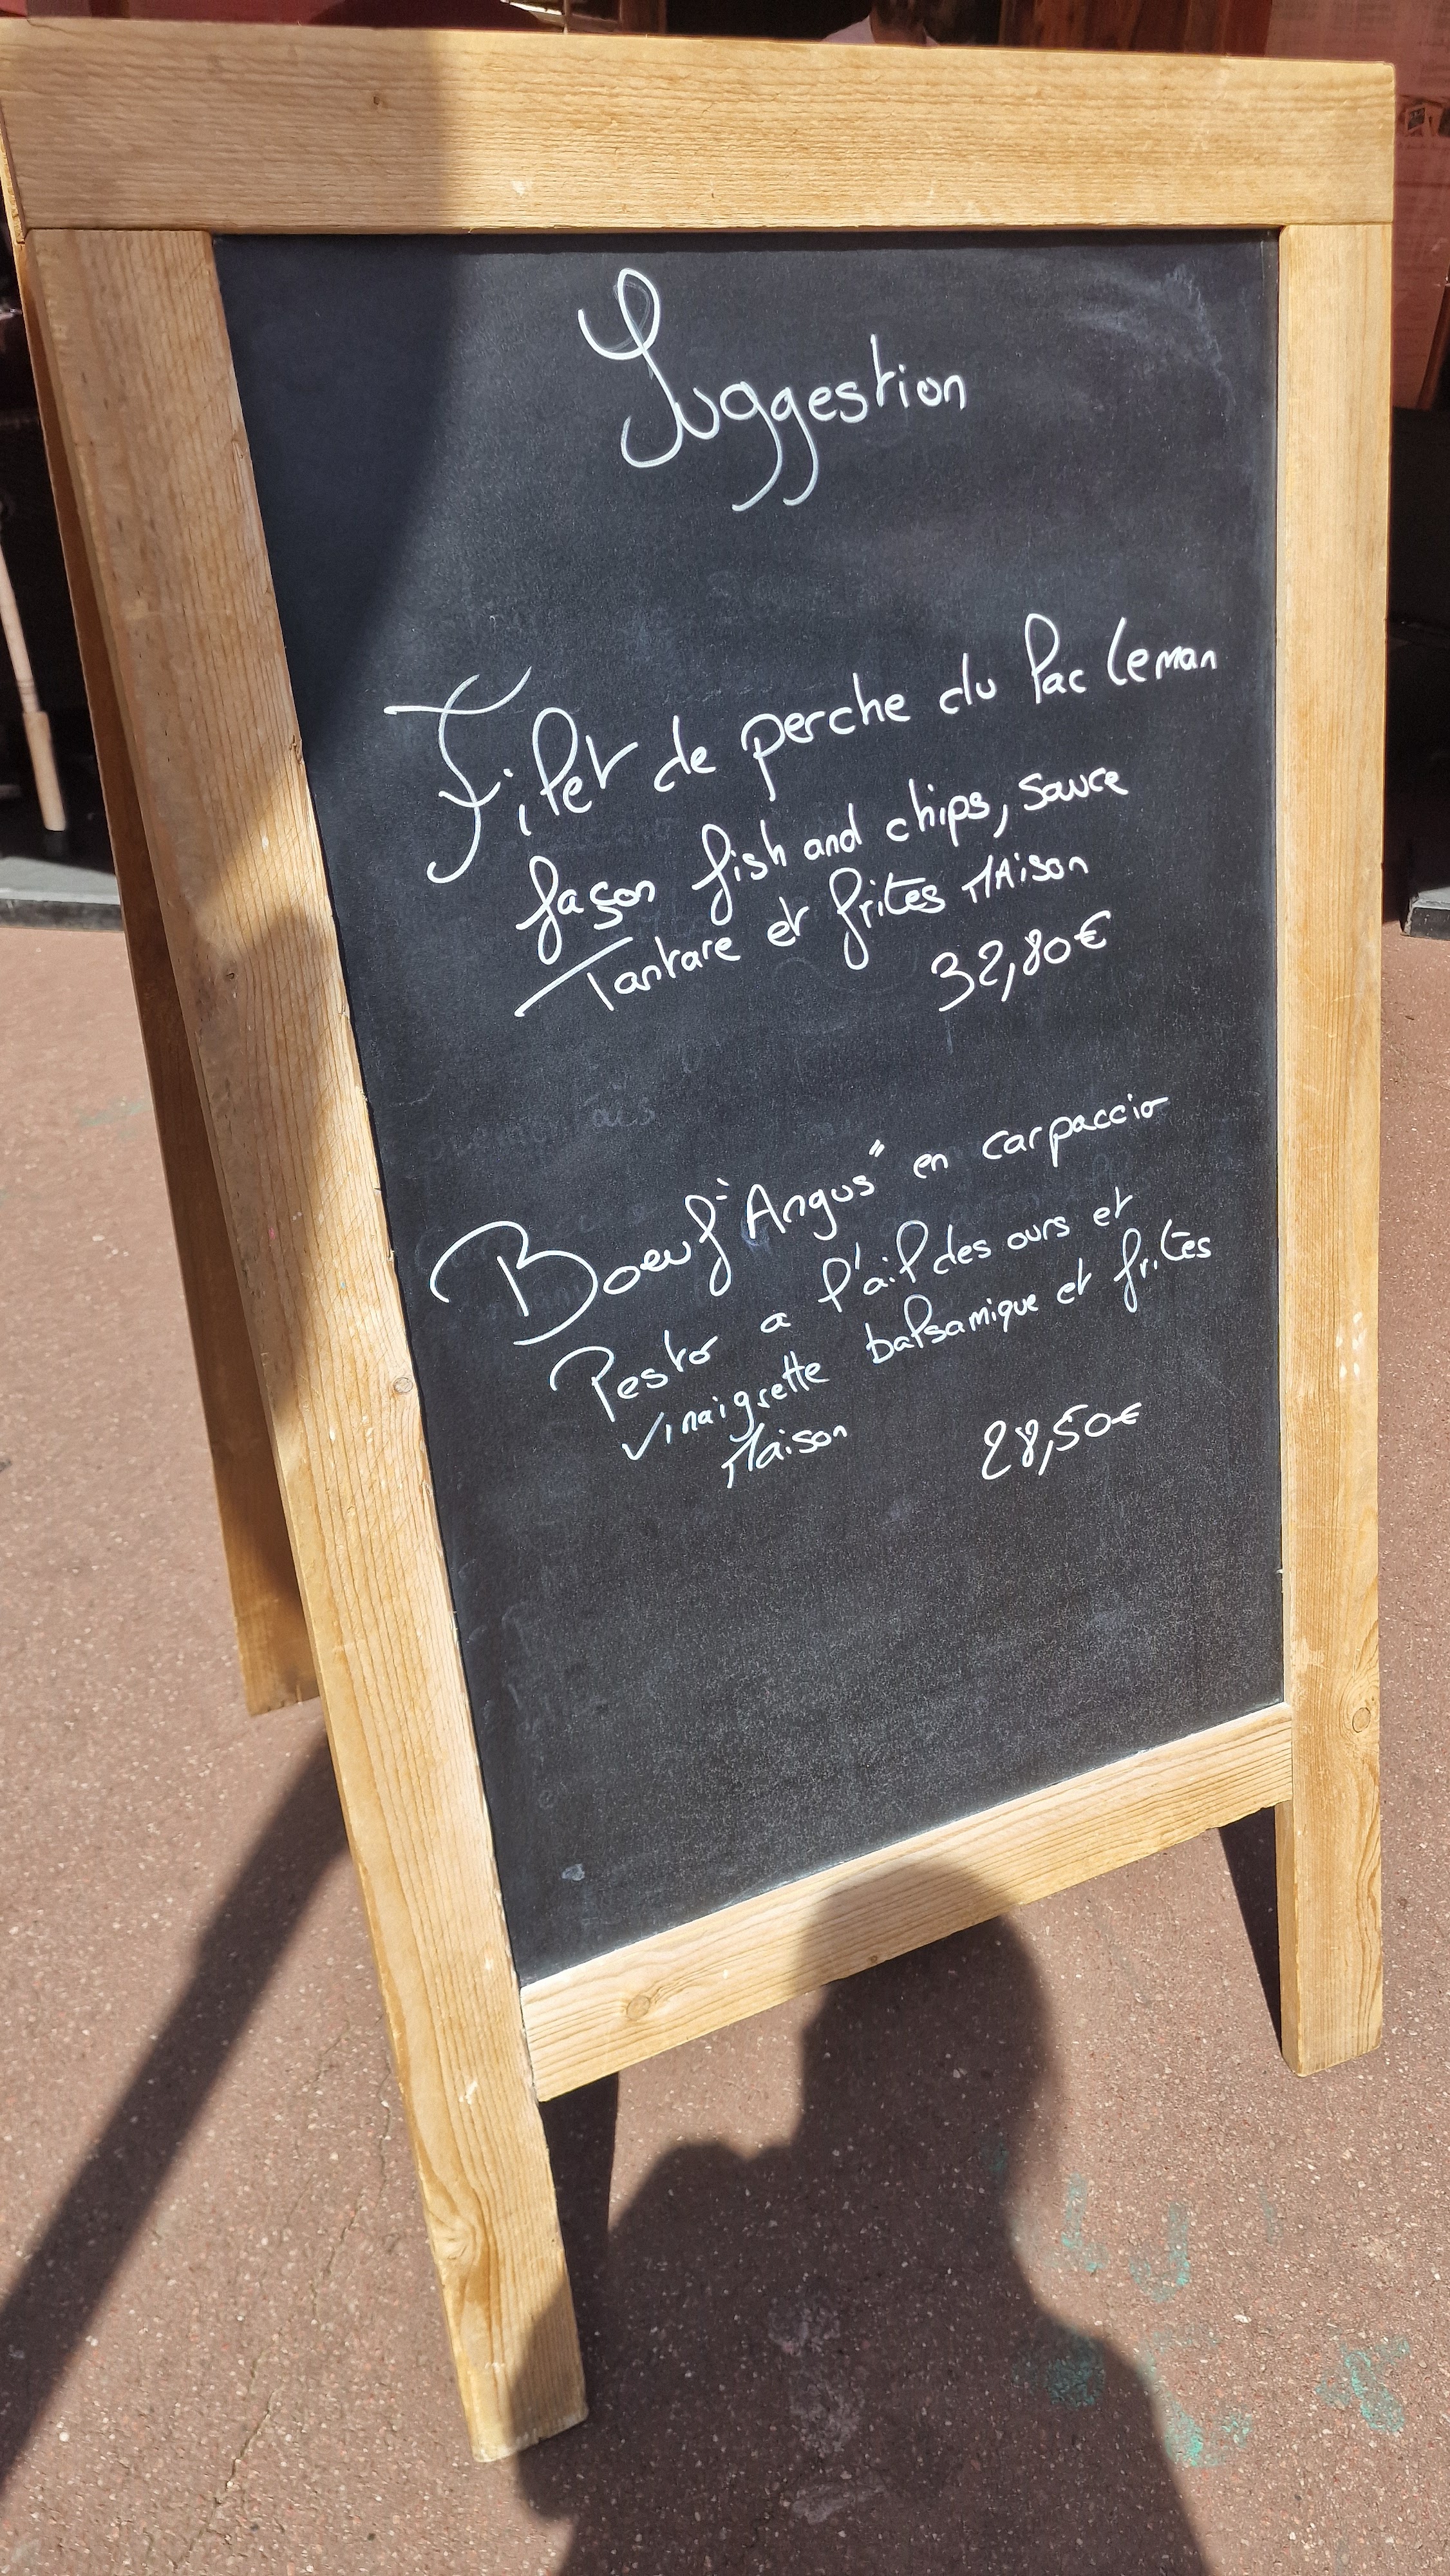 Suggestion
Filet de perche du lac Leman
façon fish and chips, sauce
Tartare et frites MAison
32,80€
Boeuf "Angus" en carpaccio
Pesto a l'ail des ours et
vinaigrette balsamique et frites
Maison 28,50€